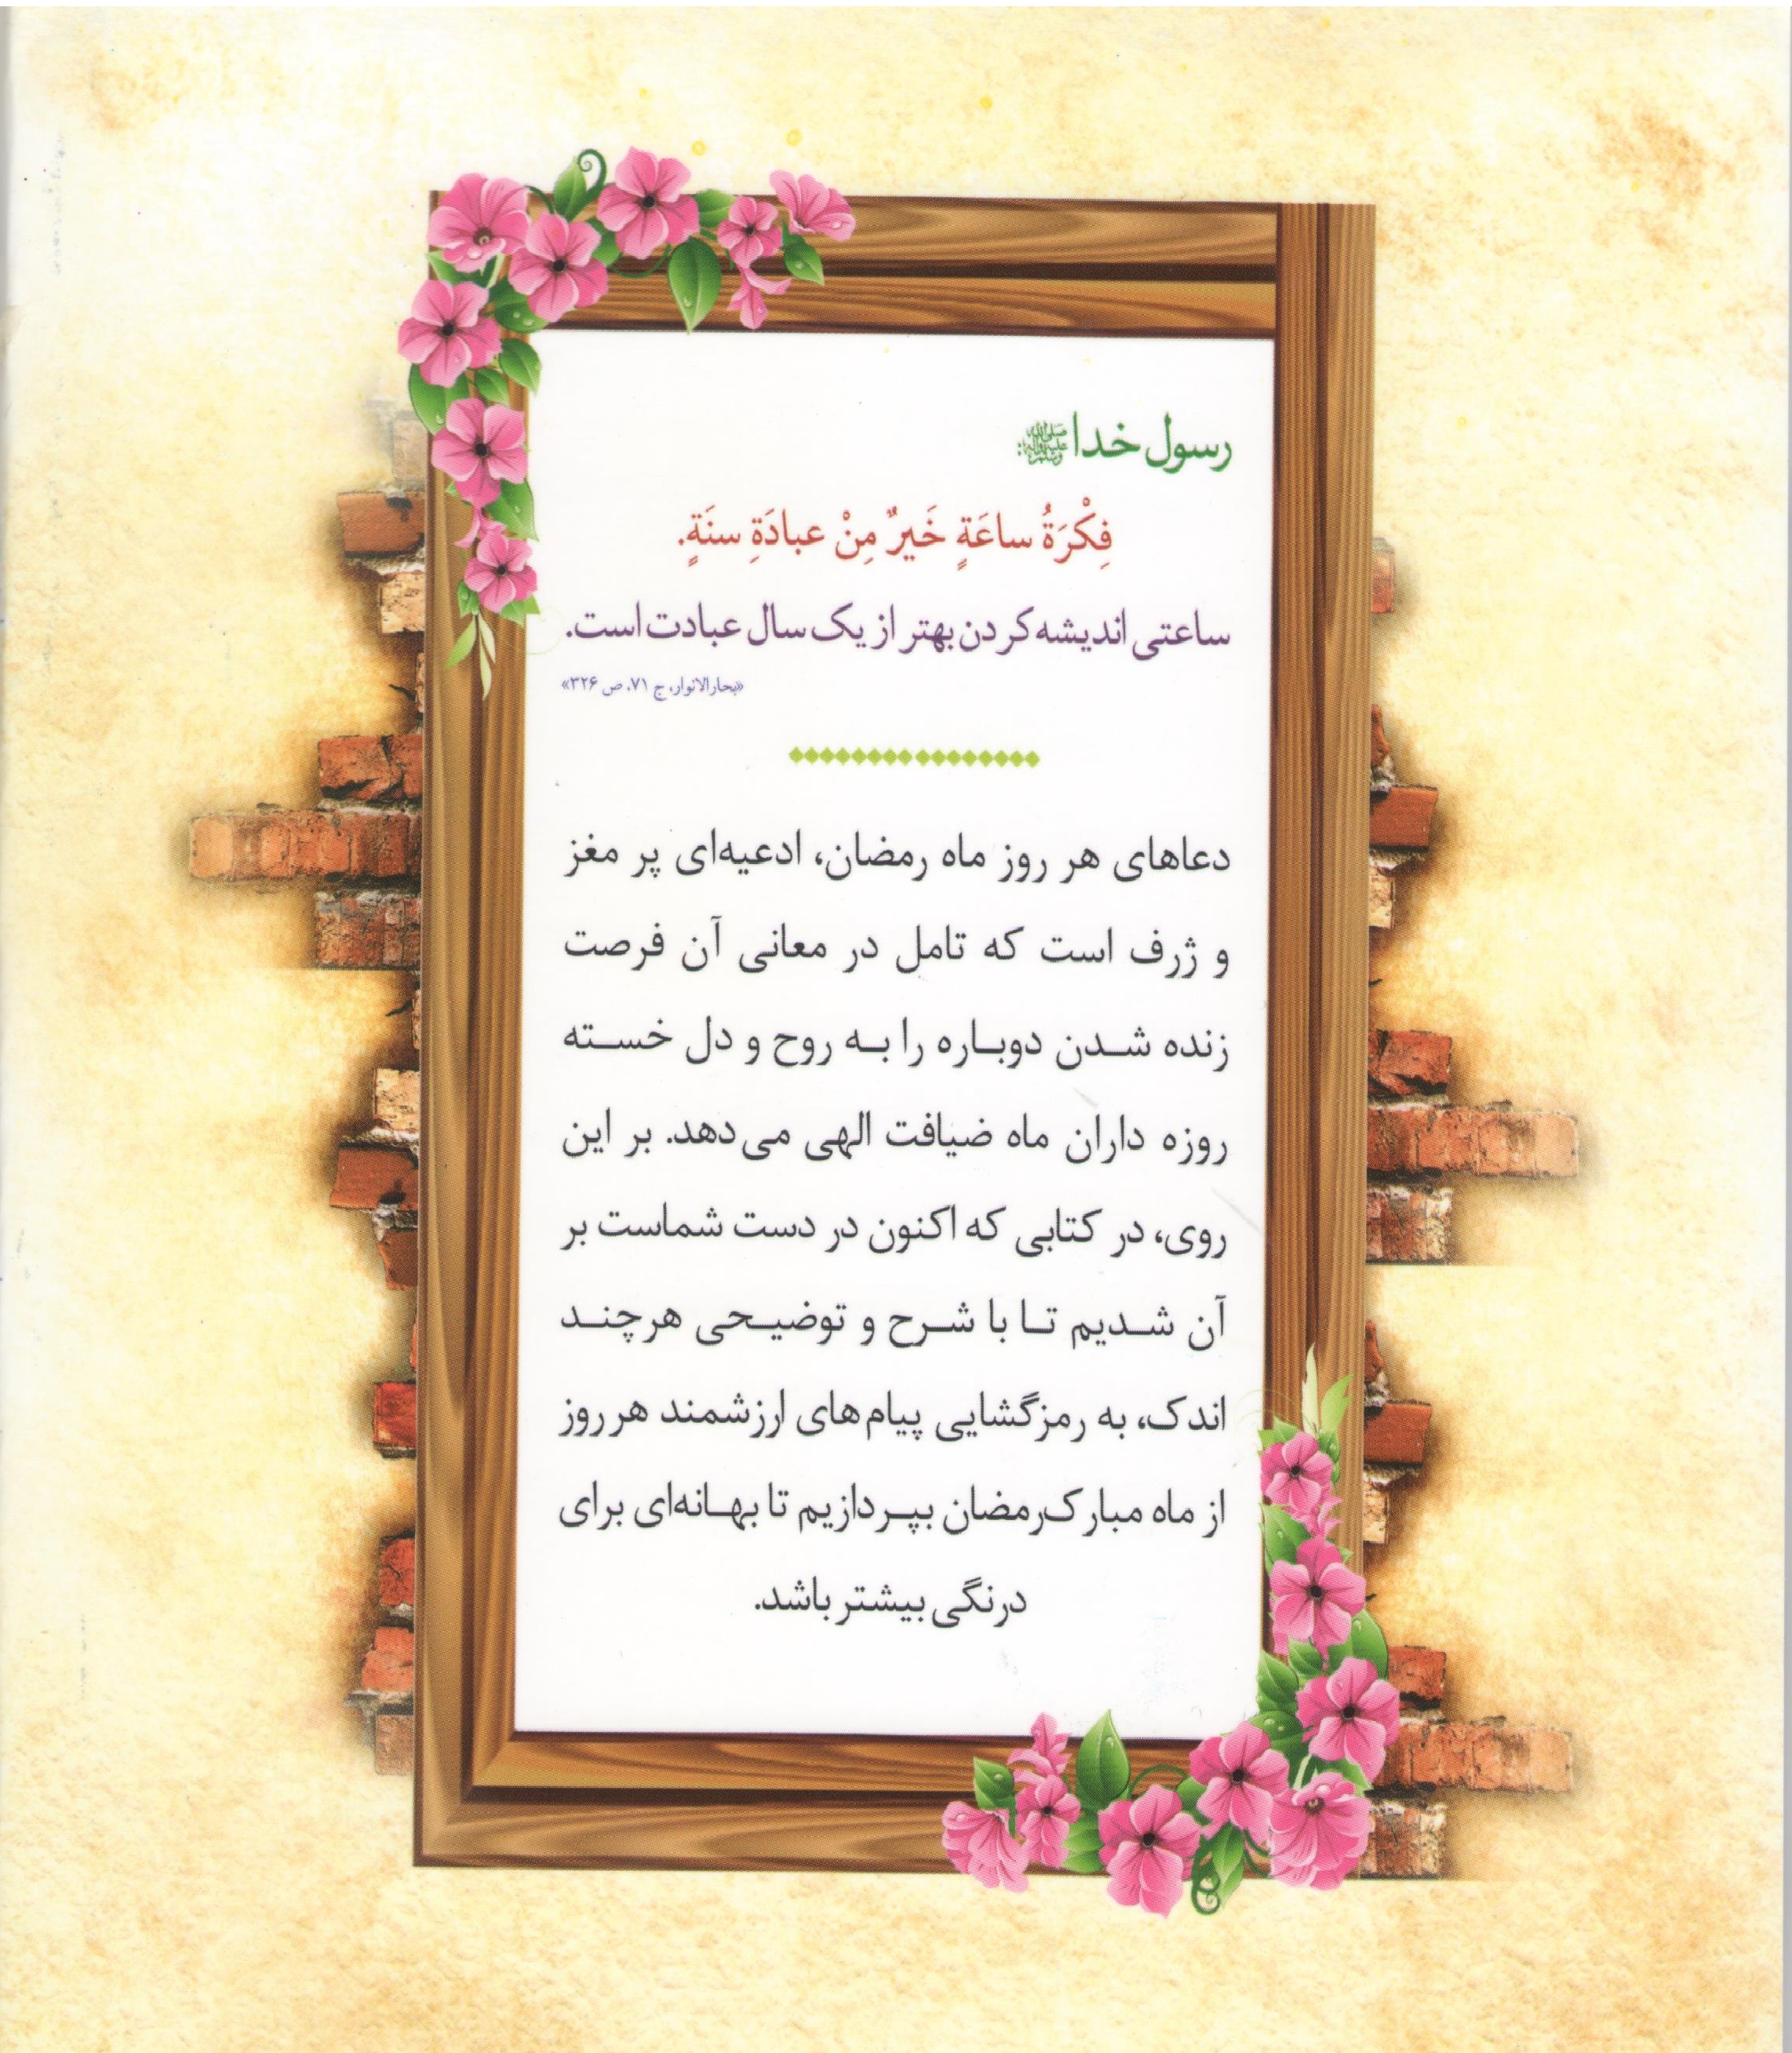 رسول خدا صلی الله علیه و آله و سلم:
فِكْرَةُ ساعَةٍ خَيرٌ مِنْ عبادَةِ سنَةٍ.
ساعتی اندیشه کردن بهتر از یک سال عبادت است.
«بحارالانوار، ج ۷۱، ص ۳۲۶»
دعاهای هر روز ماه رمضان، ادعیه‌ای پر مغز
و ژرف است که تامل در معانی آن فرصت
زنده شدن دوباره را به روح و دل خسته
روزه داران ماه ضیافت الهی می‌دهد. بر این
روی، در کتابی که اکنون در دست شماست بر
آن شدیم تا با شرح و توضیحی هرچند
اندک، به رمزگشایی پیام‌های ارزشمند هر روز
از ماه مبارک رمضان بپردازیم تا بهانه‌ای برای
درنگی بیشتر باشد.